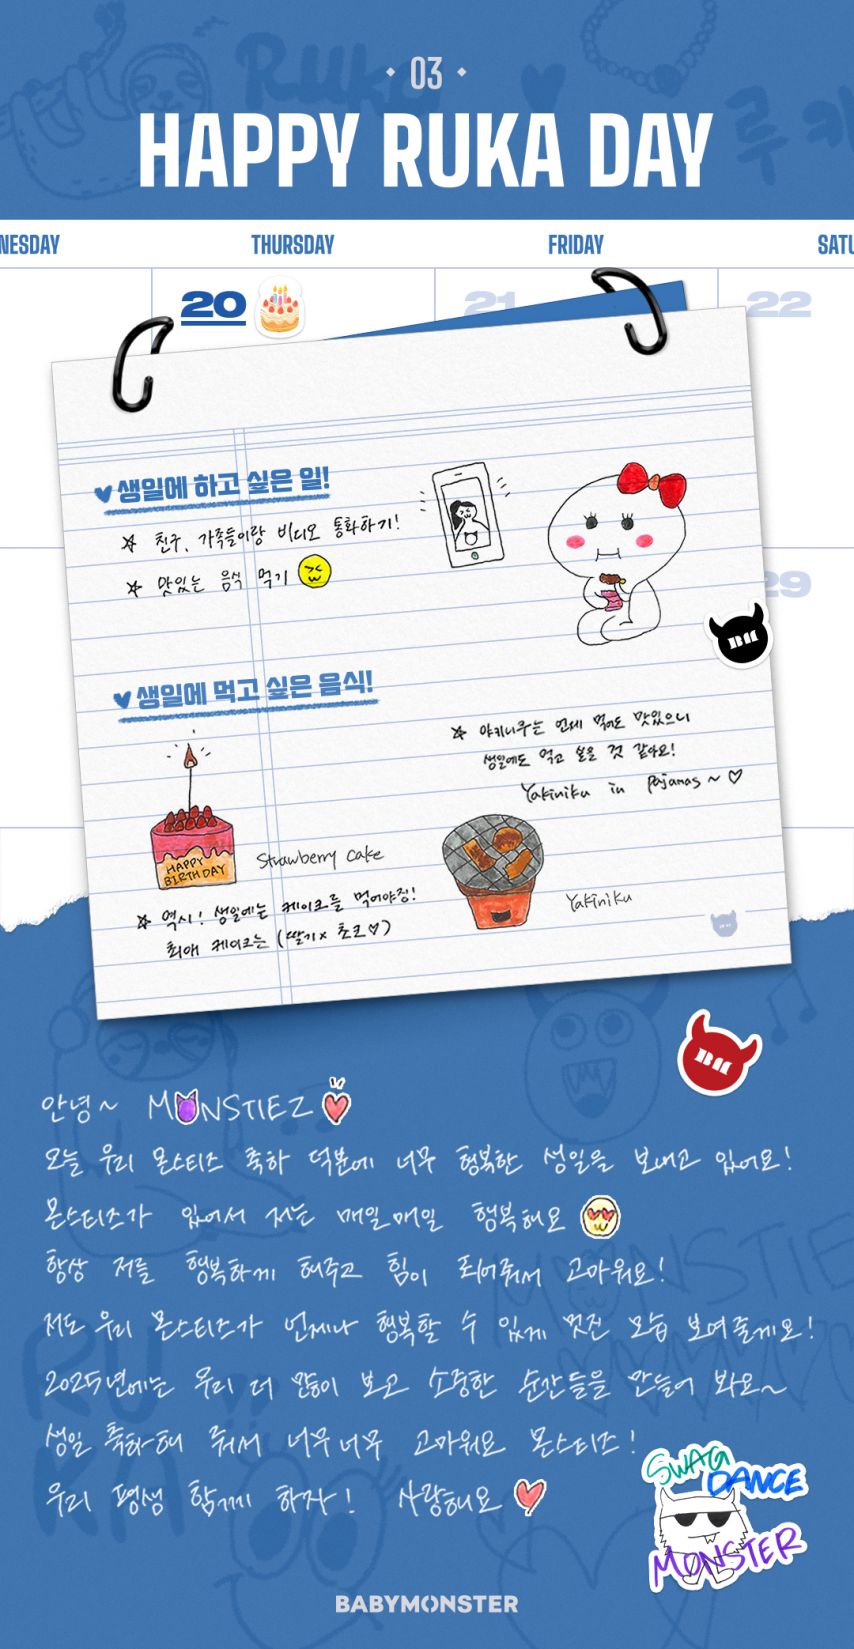 03
HAPPY RUKA DAY
Ruka
루카
NESDAY THURSDAY FRIDAY SATU
20 21 22
29
생일에 하고 싶은 일!
친구, 가족들이랑 비디오 통화하기!
맛있는 음식 먹기
생일에 먹고 싶은 음식!
야키니쿠는 언제 먹어도 맛있으니
생일에도 먹고 싶을 것 같아요!
Yakiniku in pajamas ~ ♡
HAPPY
BIRTHDAY
Strawberry cake
역시! 생일에는 케이크를 먹어야징!
최애 케이크는 (딸기x 초코♡)
Yakiniku
안녕~ MONSTIEZ
오늘 우리 몬스티즈 축하 덕분에 너무 행복한 생일을 보내고 있어요!
몬스티즈가 있어서 저는 매일매일 행복해요
항상 저를 행복하게 해주고 힘이 되어줘서 고마워요!
저도 우리 몬스티즈가 언제나 행복할 수 있게 멋진 모습 보여줄게요!
2025년에는 우리 더 많이 보고 소중한 순간들을 만들어 봐요~
생일 축하해 줘서 너무너무 고마워요 몬스티즈!
우리 평생 함께 하자! 사랑해요
MONSTIE
RU
KA
SWAG
DANCE
MONSTER
BABYMONSTER